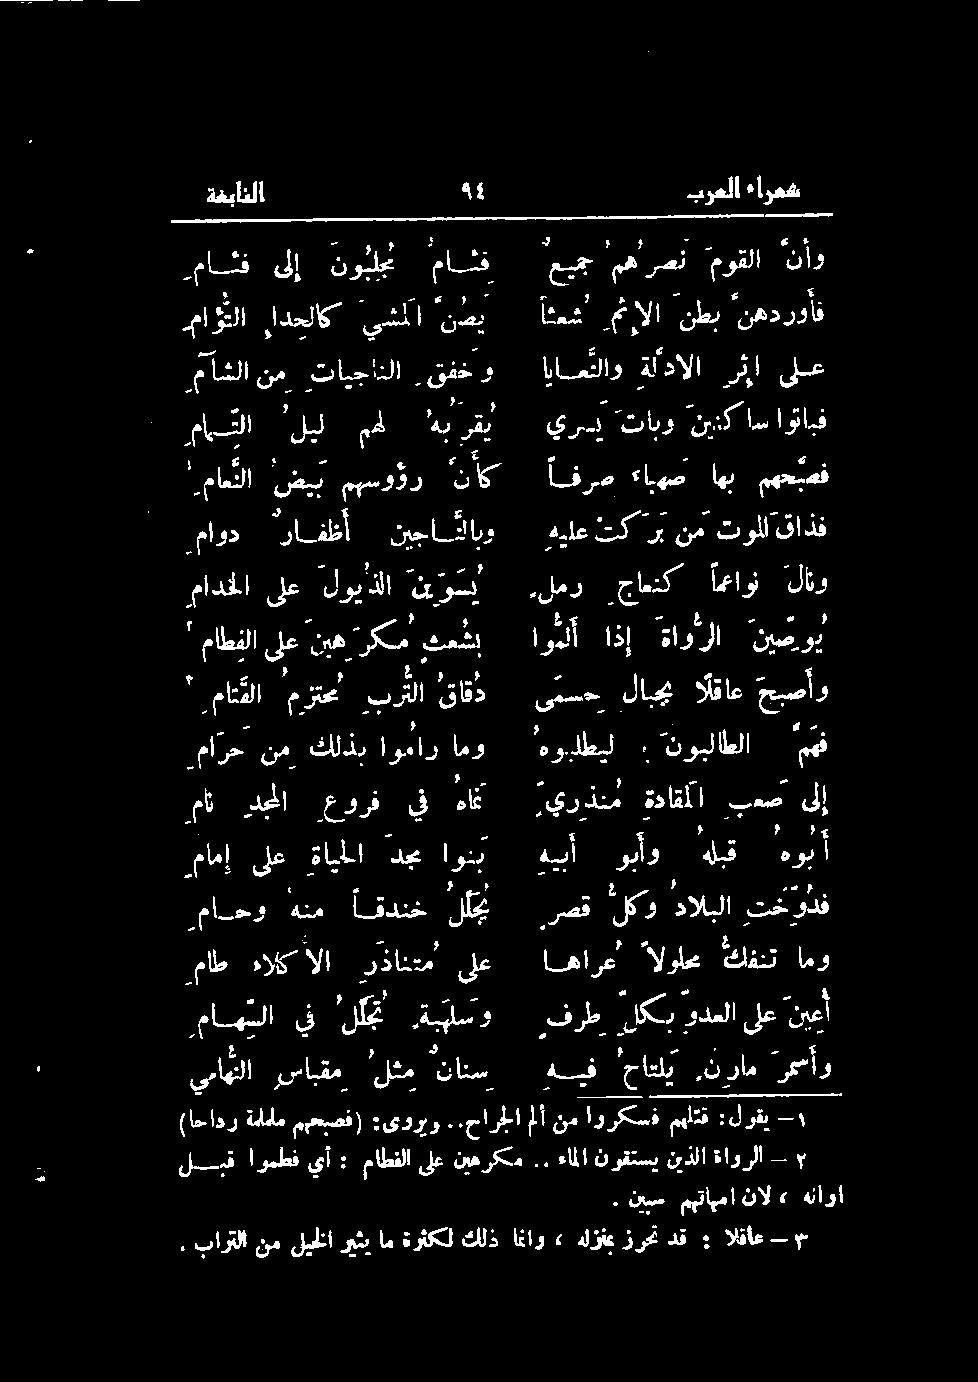 شعراء العرب ٩٤ النابغة
وأنَّ القومَ نصرُهمُ جميعٌ فِئامٌ مُجلِبُونَ إلى فئامِ
فأوردهنَّ بطنَ الأتمِ شُعثاً يَصُنَّ المشيَ كالحِدإِ التُؤامِ
على إثرِ الأدلّةِ والبَغايا وخَفقِ الناجياتِ من الشآمِ
فباتوا ساكنينَ وباتَ يَسري يُقرِّبُه لهم ليلُ التِّمامِ
فصبّحهم بها صَهباءَ صرفاً كأنَّ رؤوسهم بَيضُ النَّعامِ ١
فذاقَ الموتَ مَن بَرَكتْ عليهِ وبالنَّاجينَ أظفارٌ دوامِ
وهنَّ كأنهنَّ نعاجُ رملٍ يُسوِّينَ الذيولَ على الخدامِ
يُوصِّينَ الرُّواةَ إذا ألَمُّوا بشُعثٍ مُكرَهينَ على الفِطامِ ٢
وأصبحَ عاقلاً بجبالِ حِسمَى دُقاقُ التُّربِ مُحتزِمُ القَتامِ ٣
فهمَّ الطالبونَ ؛ ليطلبوهُ وما راموا بذلك من حَرامِ
إلى صَعبِ المقادةِ مُنذريٍّ نَماهُ في فروعِ المجدِ نامِ
أبُوهُ قبلهُ وأبو أبيهِ بَنَوا مجدَ الحياةِ على إمامِ
فدُوّخَتِ البلادُ وكلُّ قصرٍ يُجلِّلُ خندقاً منه وحامِ
وما تنفكُّ محلولاً عُراها على مُتناذَرِ الأكلاءِ طامِ
أُعينَ على العدوِّ بكلِّ طِرفٍ وسَلهبةٍ تُجلَّلُ في السِّمامِ
وأسمرَ مارنٍ يَلتاحُ فيهِ سِنانٌ مثلُ مِقباسِ النُّهامي
١ – يقول: قتلهم فسكروا من ألم الجراح.. ويروى: (فصبحهم ململمة رداحا)
٢ – الرواة الذين يستقون الماء .. مكرهين على الفطام : أي فطموا قبل
اوانه ، لان امهاتهم سبين .
٣ – عاقلا : قد تحرز بمنزله ، وانما ذلك لكثرة ما يثير الخيل من التراب .